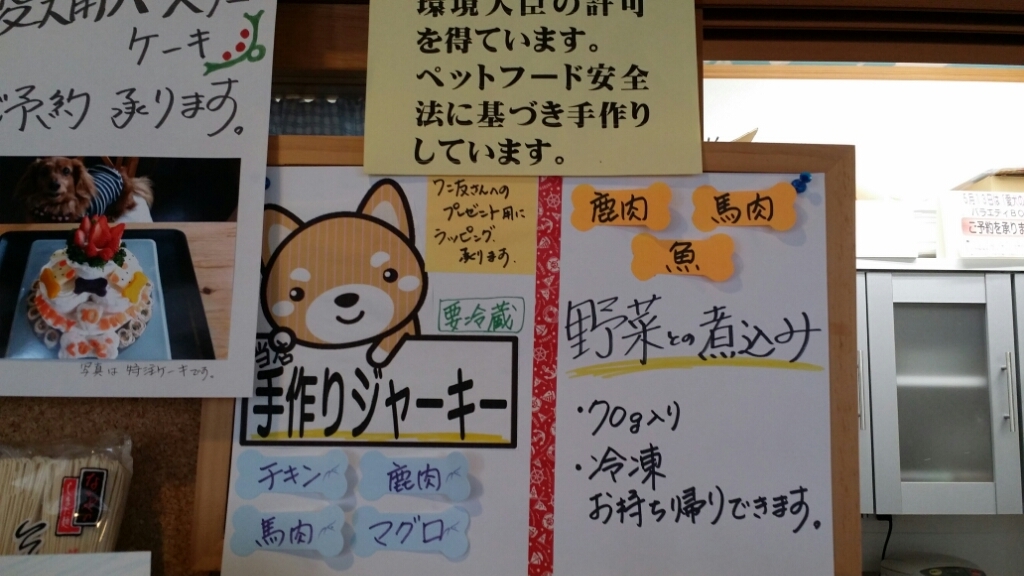 愛犬用バースデー
ケーキ
ご予約 承ります。
写真は 特注ケーキです。
環境大臣の許可
を得ています。
ペットフード安全
法に基づき手作り
しています。
ワン友さんへの
プレゼント用に
ラッピング
承ります。
要冷蔵
当店
手作りジャーキー
チキン
鹿肉
馬肉
マグロ
鹿肉
馬肉
魚
野菜との煮込み
・70g入り
・冷凍
お持ち帰りできます。
バラエティBO
ご予約を承りま